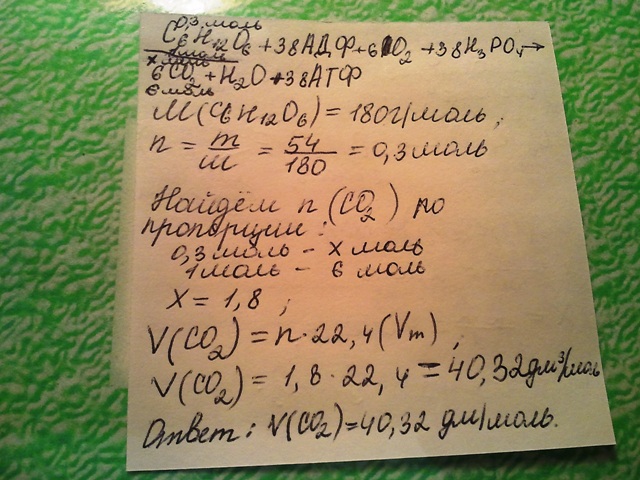 0,3 моль
C₆H₁₂O₆ + 38АДФ + 6O₂ + 38H₃PO₄ →
1 моль
x моль
6CO₂ + H₂O + 38АТФ
6 моль
M(C₆H₁₂O₆) = 180 г/моль;
n = m/M = 54/180 = 0,3 моль
Найдём n (CO₂) по
пропорции:
0,3 моль – x моль
1 моль – 6 моль
X = 1,8 ;
V(CO₂) = n · 22,4 (Vm) ;
V(CO₂) = 1,8 · 22,4 = 40,32 дм³/моль
Ответ: V(CO₂) = 40,32 дм/моль.